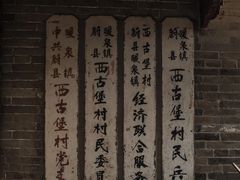 暖泉镇
蔚县
西古堡村民兵
暖泉镇
蔚县
西古堡村
经济联合服务
暖泉镇
蔚县
西古堡村村民委员
暖泉镇
中共蔚县
西古堡村党支